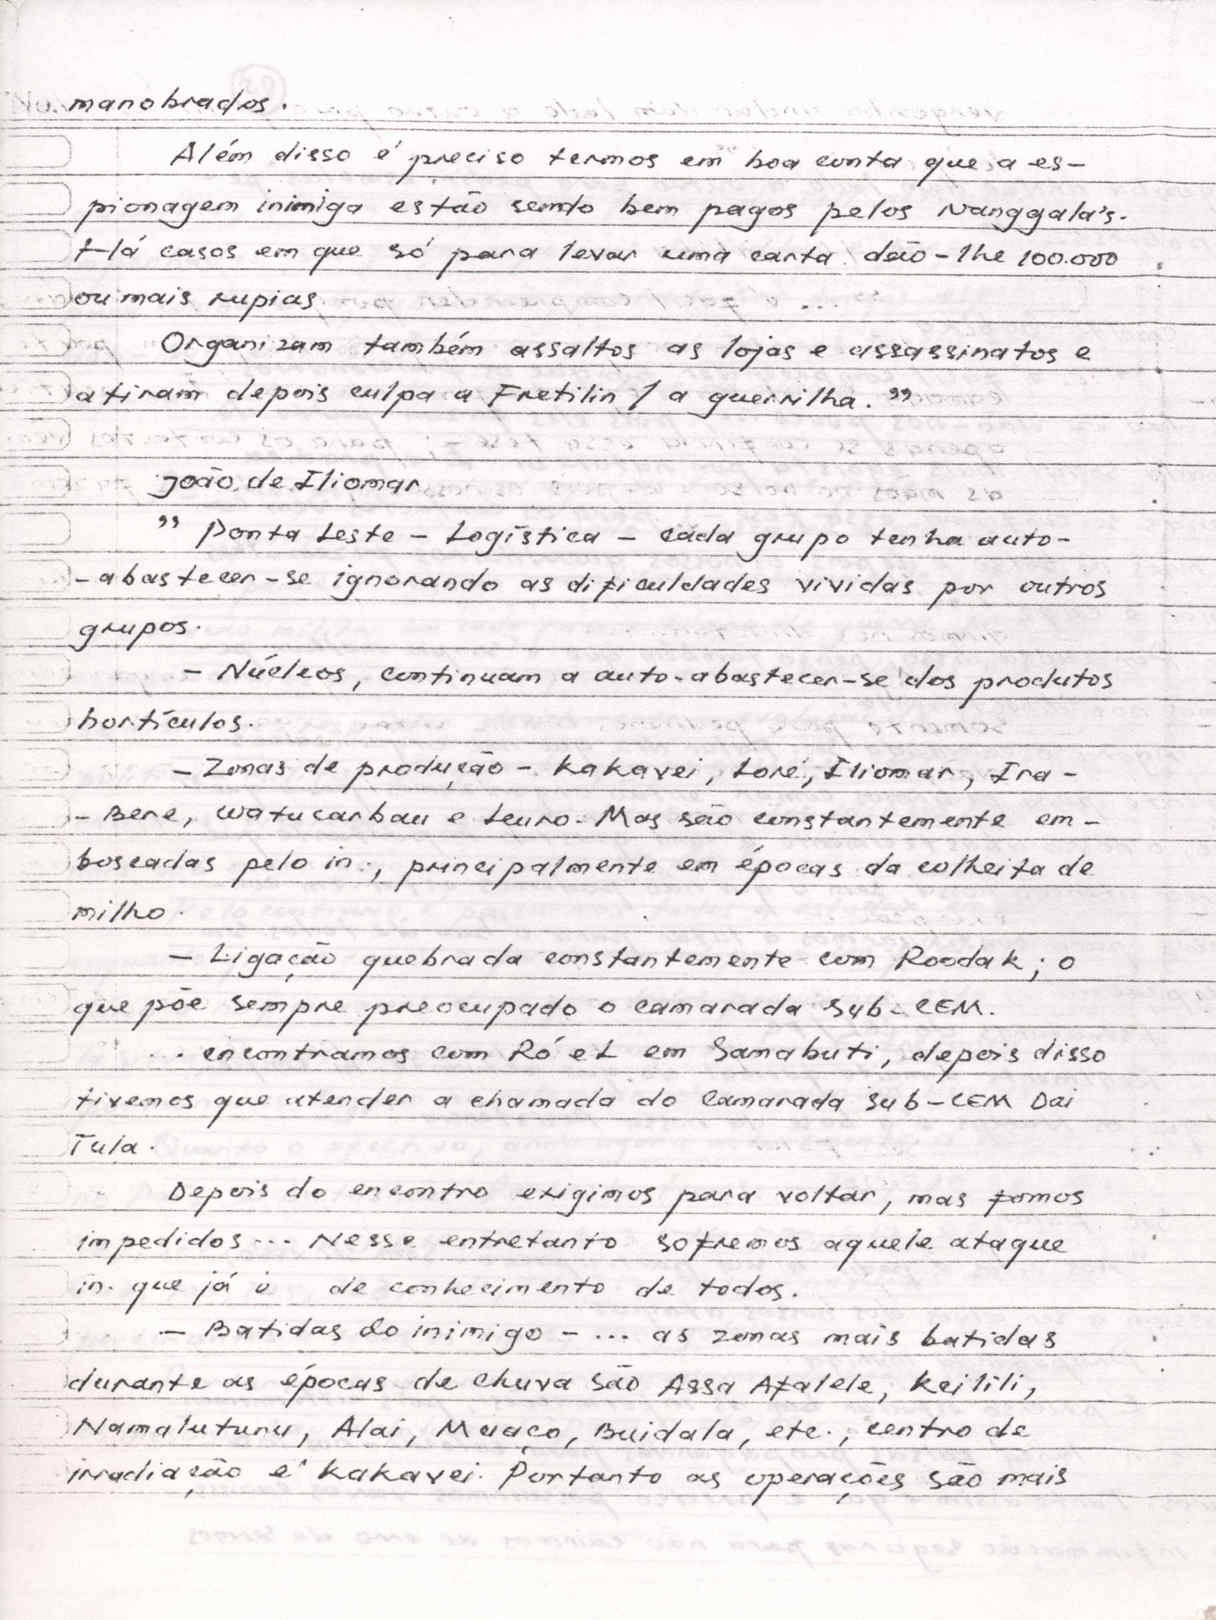 manobrados.
Além disso é preciso termos em boa conta que a es-
pionagem inimiga estão sendo bem pagos pelos Nanggala's.
Há casos em que só para levar uma carta dão-lhe 100.000
ou mais rupias.
Organizam também assaltos as lojas e assassinatos e
atiram depois culpa a Fretilin / a guerrilha."
João de Iliomar
" Ponta Leste - Logística - cada grupo tenha auto-
-abastecer-se ignorando as dificuldades vividas por outros
grupos.
- Núcleos, continuam a auto-abastecer-se dos produtos
hortículos.
- Zonas de produção - Kakavei, Loré, Iliomar, Ira-
-Bere, Watucarbau e Leuro. Mas são constantemente em-
boscadas pelo in., principalmente em épocas da colheita de
milho.
- Ligação quebrada constantemente com Roodak; o
que põe sempre preocupado o camarada Sub-CEM.
... encontramos com Ró e L em Samabuti, depois disso
tivemos que atender a chamada do Camarada Sub-CEM Dai
Tula.
Depois do encontro exigimos para voltar, mas fomos
impedidos... Nesse entretanto sofremos aquele ataque
in. que já é de conhecimento de todos.
- Batidas do inimigo - ... as zonas mais batidas
durante as épocas de chuva são Assa Afalele, Keilili,
Namaluturu, Alai, Muaço, Buidala, etc., centro de
irradiação é Kakavei. Portanto as operações são mais